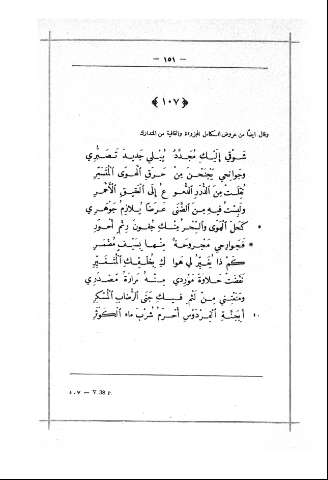 — ١٥١ —
﴿١٠٧﴾
وقال ايضًا من عروض الكامل المجزوءة والقافية من المتدارك
شَوْقِي إِلَيْكَ مُجَدَّدُ يُبْلِي جَدِيدَ تَصَبُّرِي
وَجَوَانِحِي يَجْنَحْنَ مِنْ حُرَقِ الْهَوَى
مِنَ الدُّرَرِ الدُّمُوعُ إِلَى الْعَقِيقِ الْأَحْمَرِ
فِيهِ مِنَ الضَّنَى عَرَضًا يُلَازِمُ جَوْهَرِي
٥ كَحَلَ الْهَوَى وَالسِّحْرُ مِنْكَ جُفُونَ رِئْمٍ أَحْوَرِ
فَجَوَارِحِي مَجْرُوحَةٌ مِنْهَا بِسَيْفٍ مُضْمَرِ
كَمْ ذَا هَوَاكَ
حَلَاوَةَ مَوْرِدِي مِنْهُ مَرَارَةُ مَصْدَرِي
وَمَنَعْتَنِي مِنْ فِيكَ جَنَى الرُّضَابِ الْمُسْكِرِ
١٠ أَبِجَنَّةِ الْفِرْدَوْسِ أُحْرَمُ شُرْبَ مَاءِ الْكَوْثَرِ
٤٠٧ — 7.38 P.